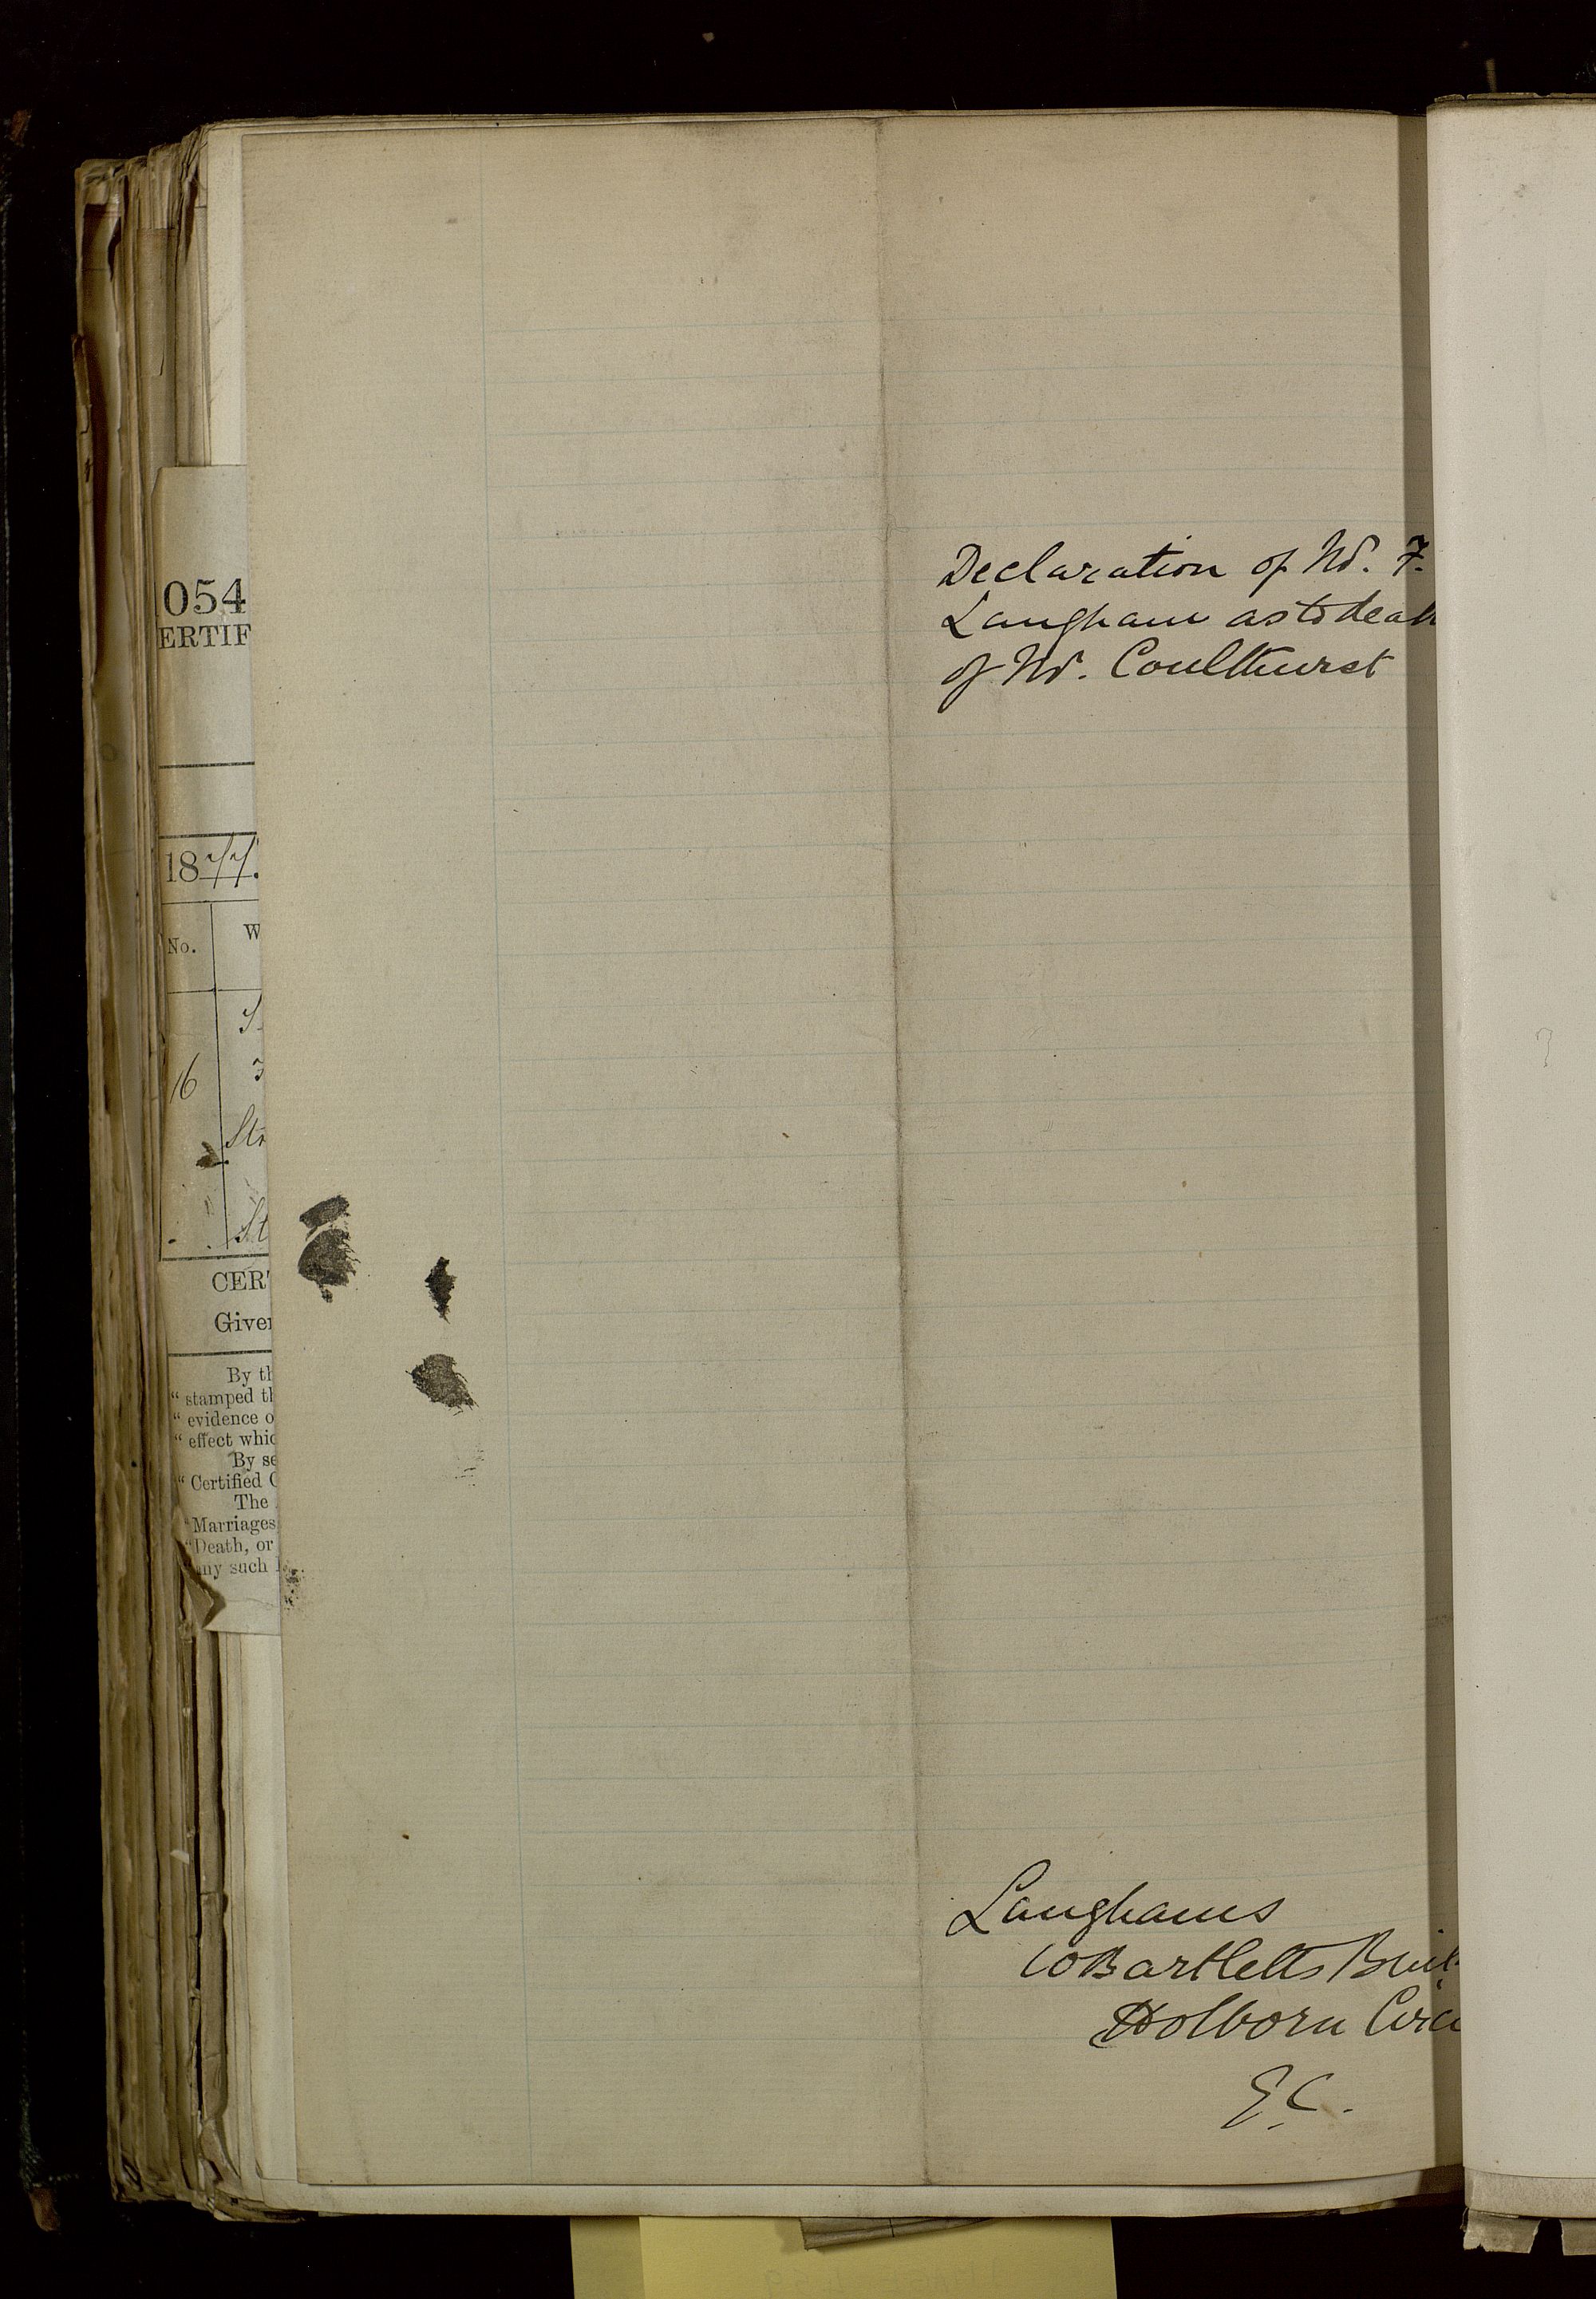 054
ERTIF
1877.
No.
W
16
Str
St
CER
Given
By th
“ stamped th
“ evidence o
“ effect whic
By se
“ Certified C
The
“ Marriages
“ Death, or
any such
Declaration of W. F.
Langham as to death
of W. Coulthurst
Langhams
10 Bartletts Buil
Holborn Circ
E.C.